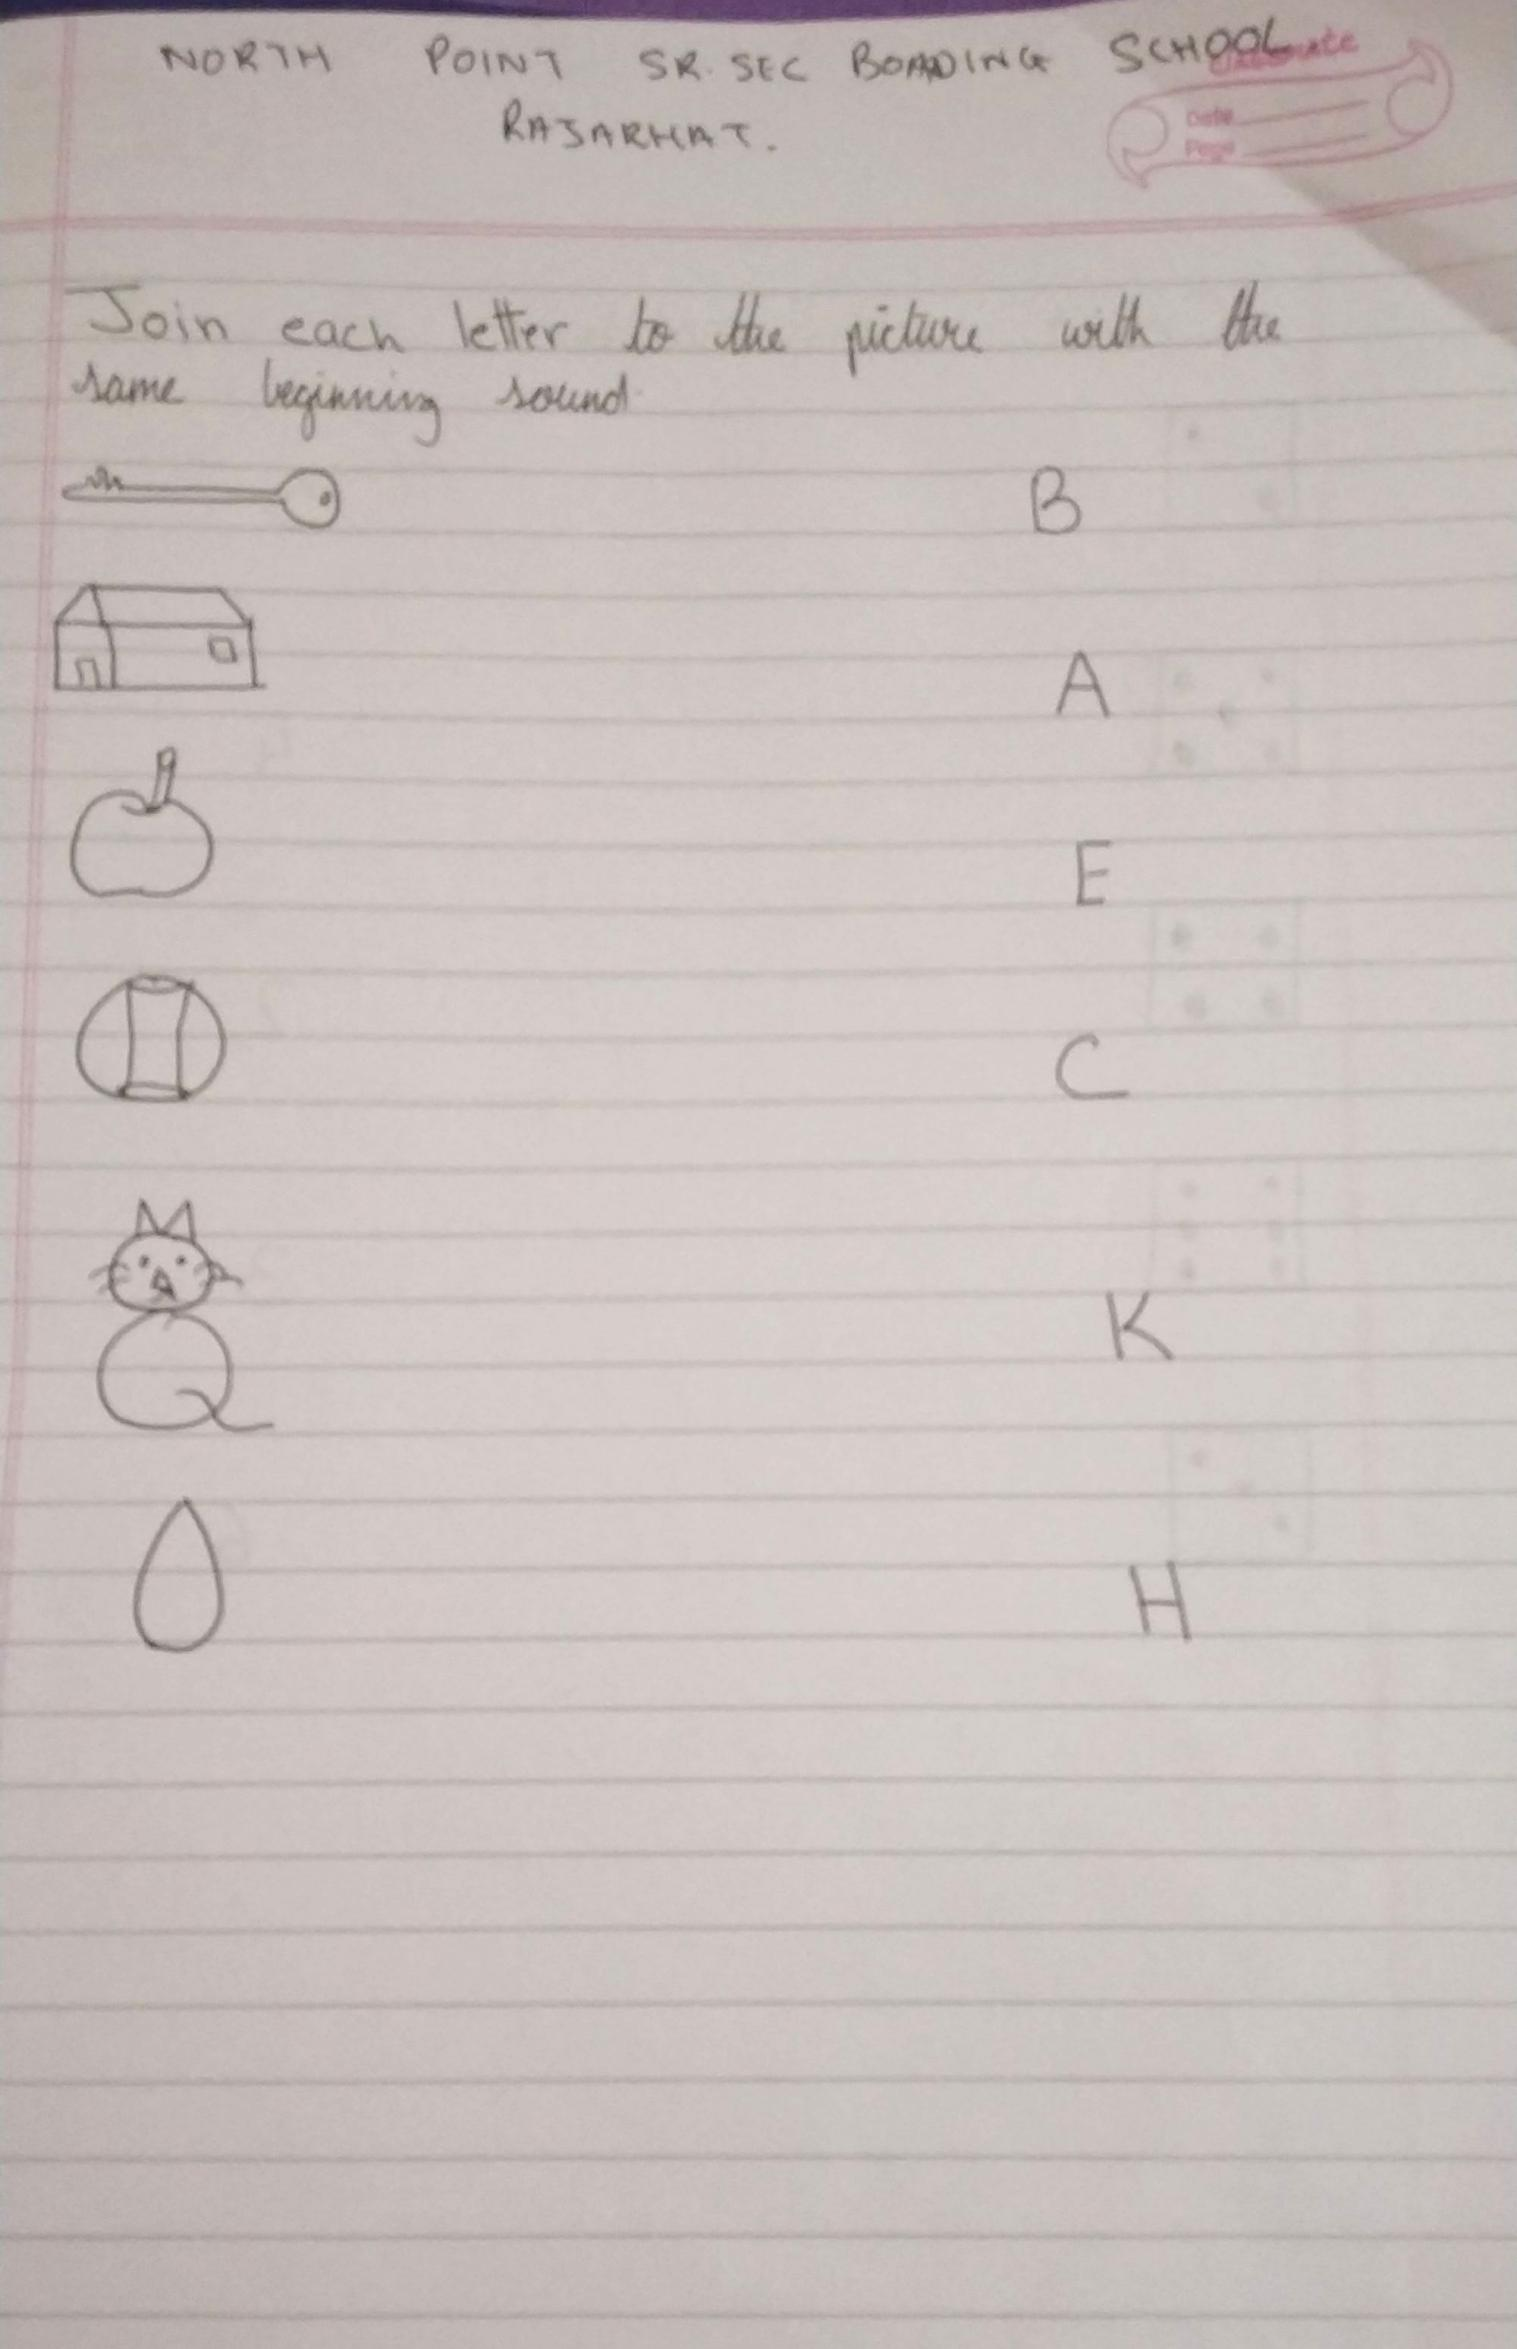 NORTH POINT SR. SEC BOADING SCHOOL
RAJARHAT.
Date
Page
Join each letter to the picture with the
same beginning sound
B
A
E
C
K
H